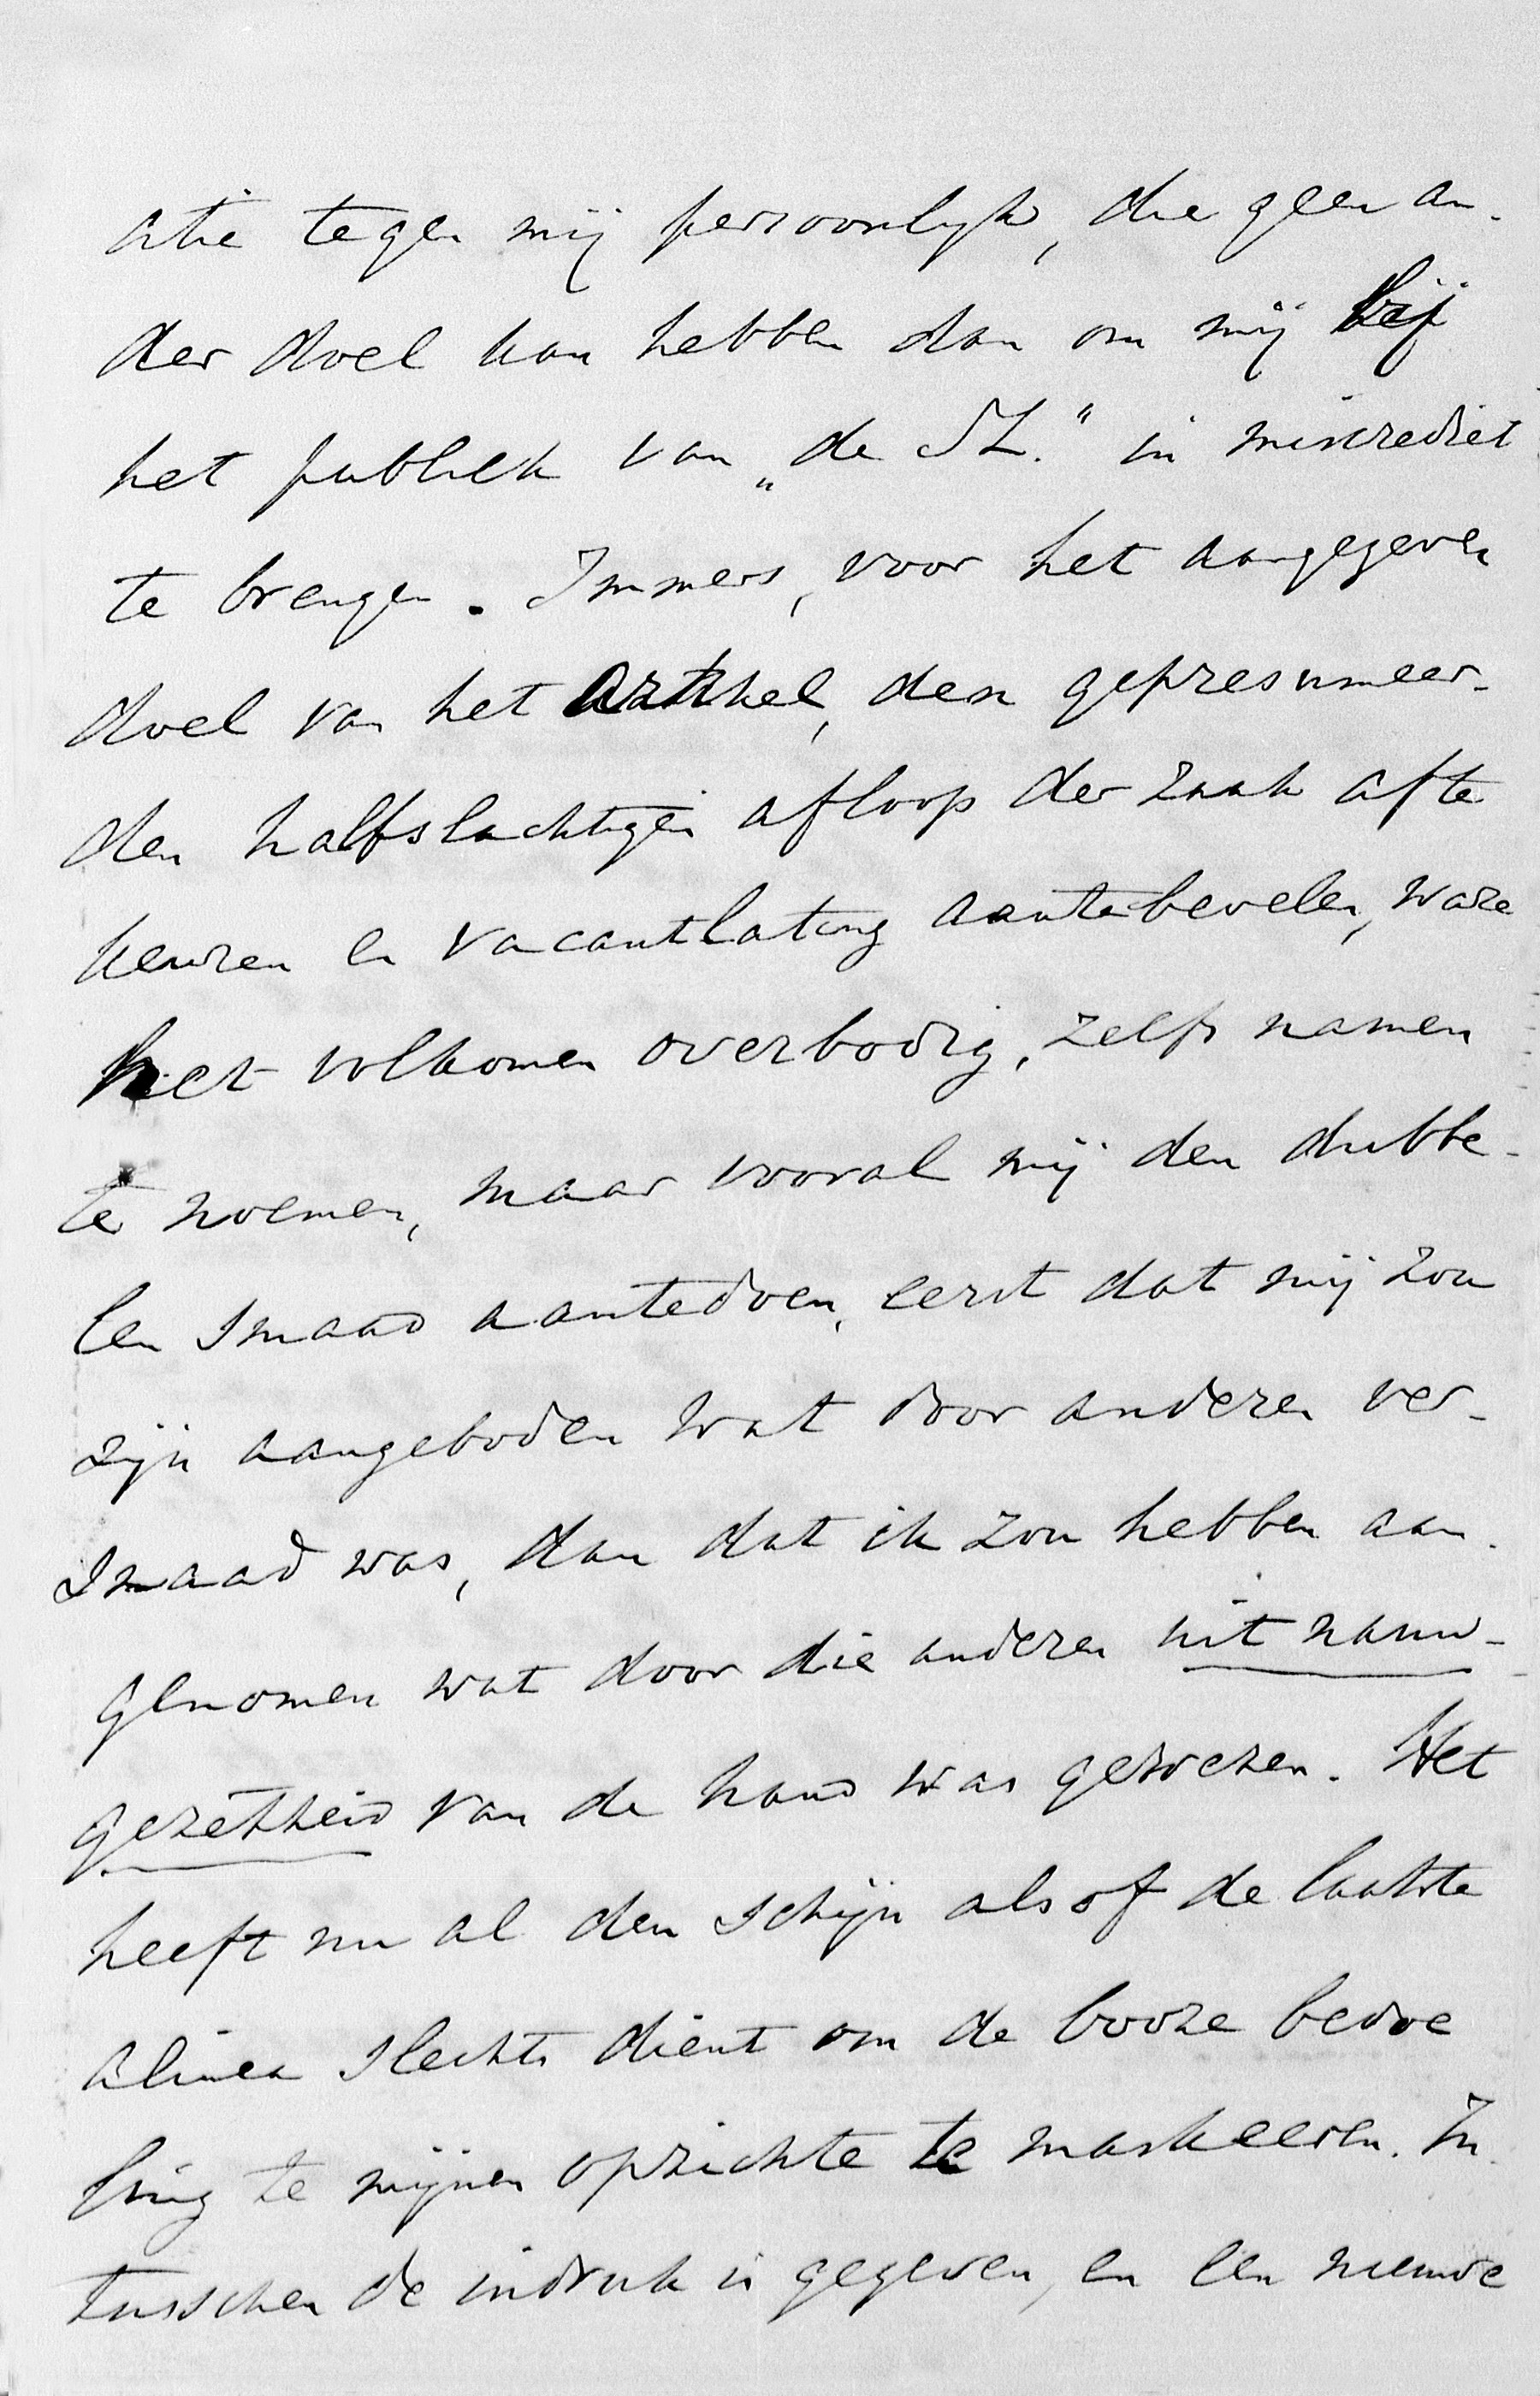 atie tegen mij persoonlijk, die geen an-
der doel kan hebben dan om mij bij
het publiek van „de S L." in miscrediet
te brengen. Immers, voor het aangegeven
doel van het artikel, den gepresumeer-
den halfslachtigen afloop der zaak afte
keuren en vacantlating aantebevelen, ware
het volkomen overbodig, zelfs namen
te noemen, maar vooral mij den dubbe-
len smaad aantedoen, eerst dat mij zou
zijn aangeboden wat door anderen ver-
smaad was, dan dat ik zou hebben aan-
genomen wat door die anderen uit nauw-
gezetheid van de hand was gewezen. Het
heeft nu al den schijn alsof de laatste
alinea slechts dient om de booze bedoe
ling te mijnen opzichte te maskeeren. In
tusschen de indruk is gegeven, en een nieuwe